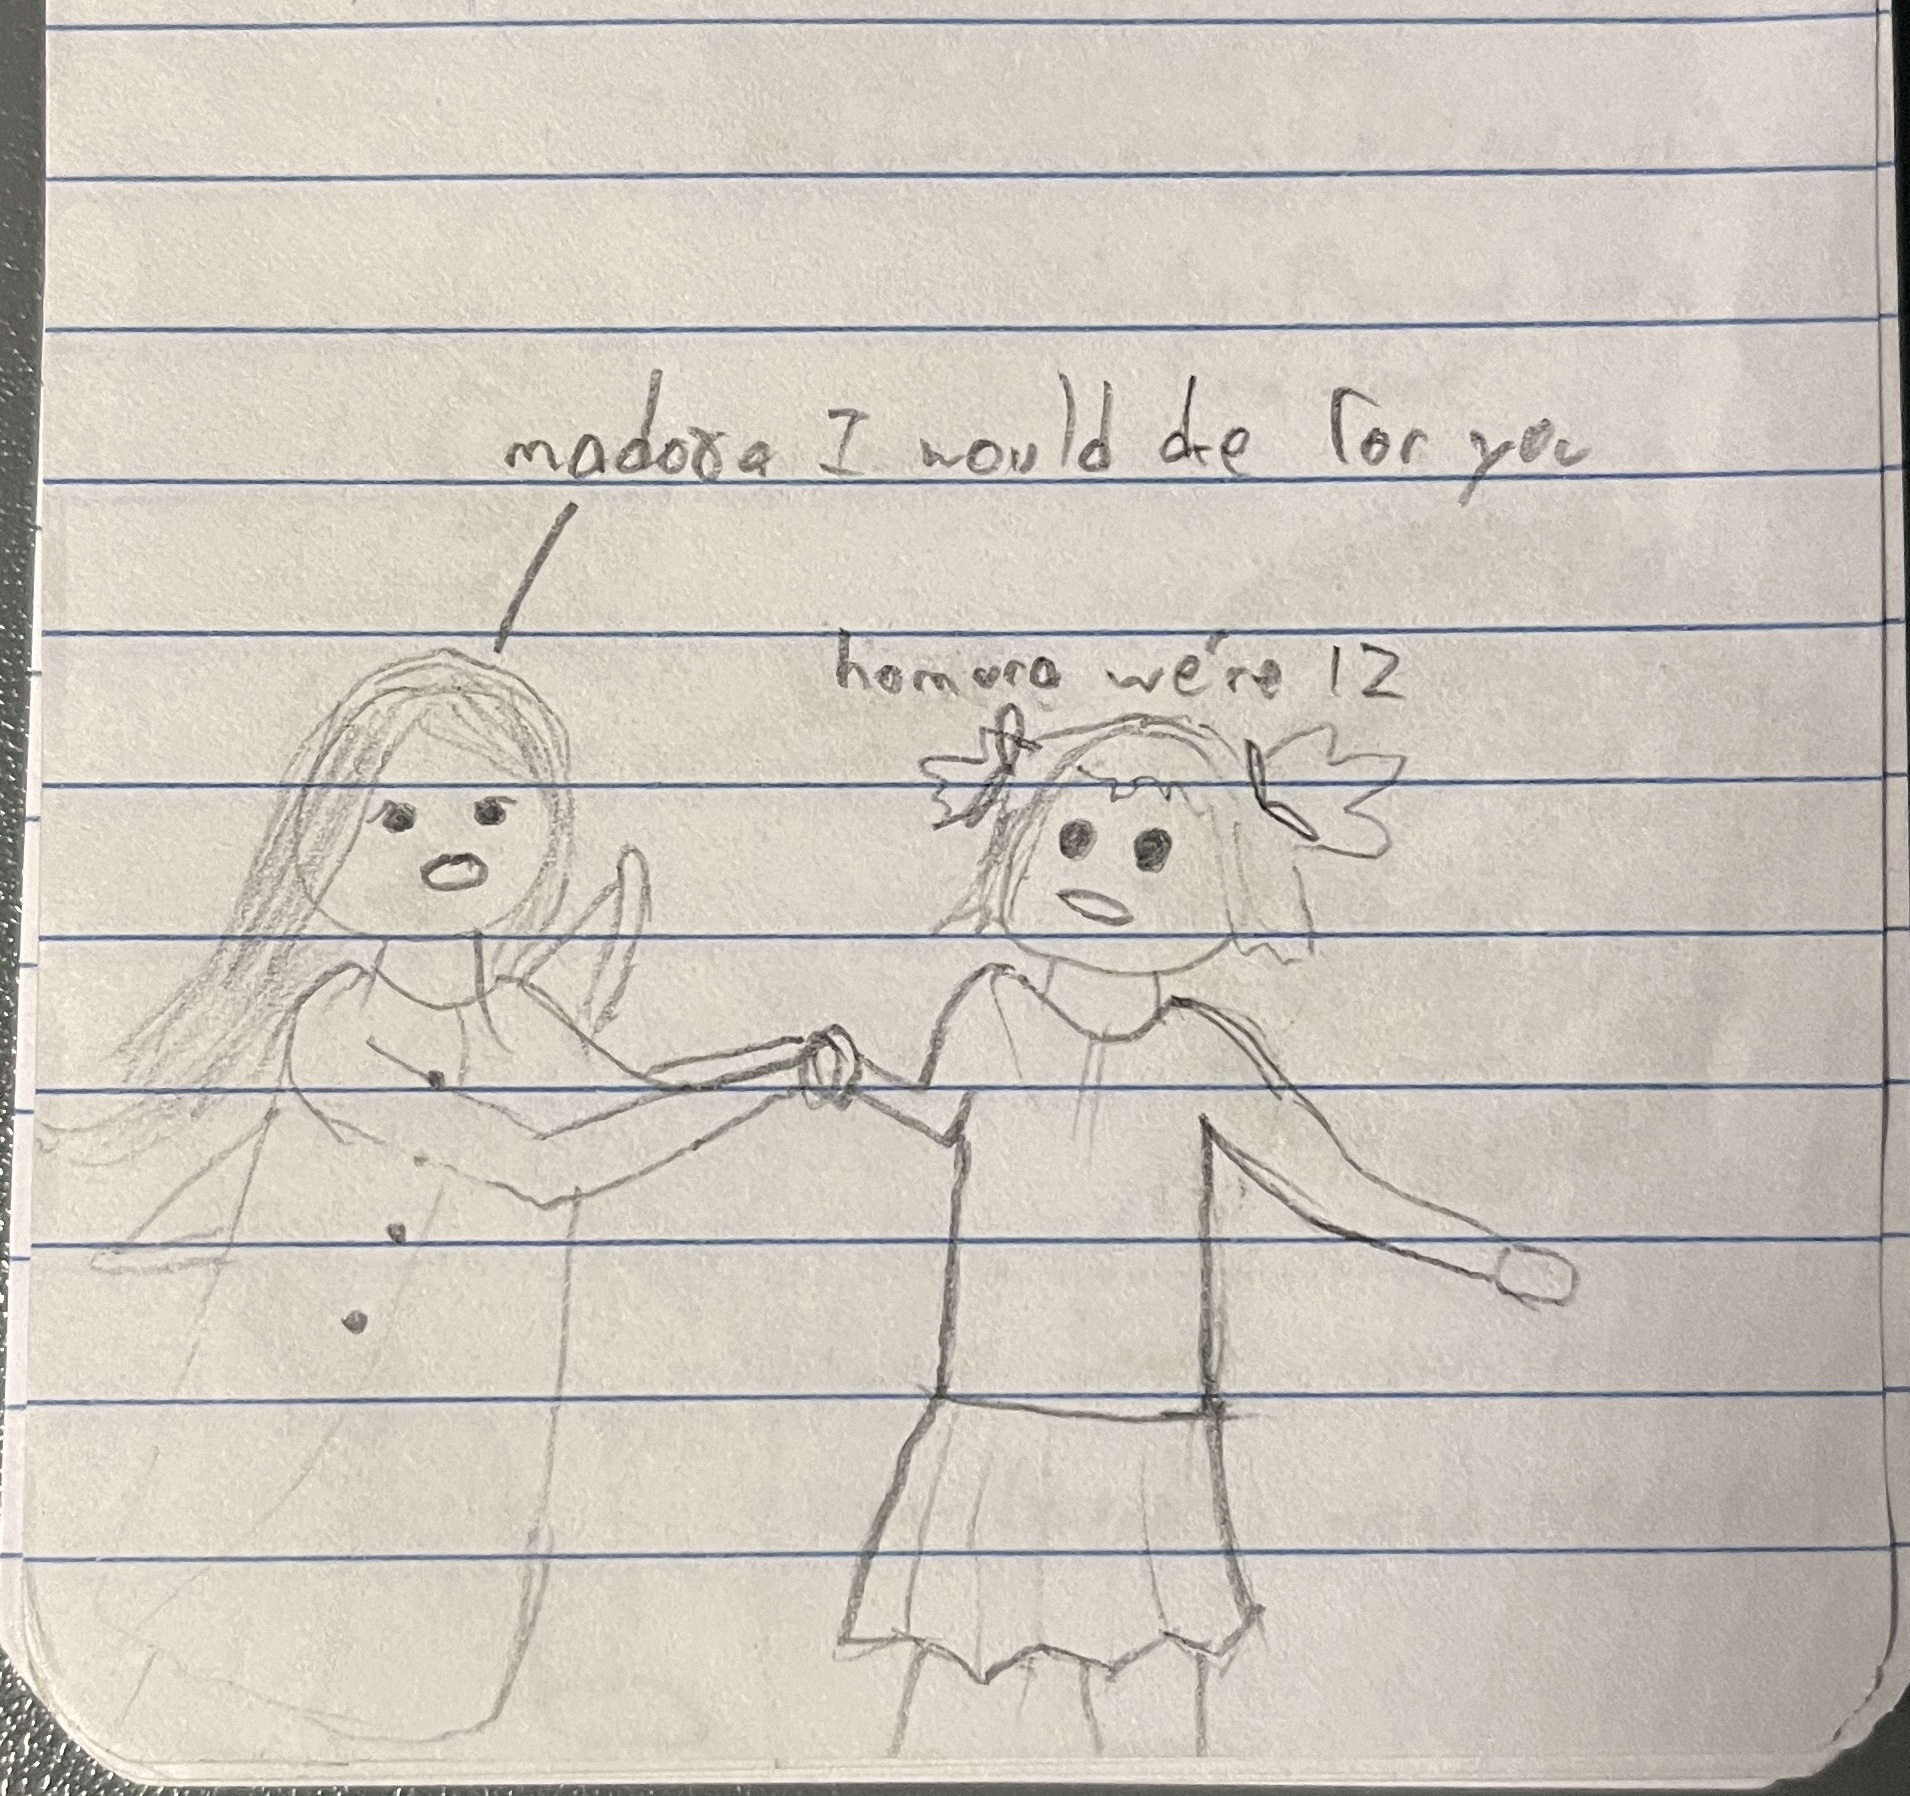 madoka I would die for you
homura we're 12